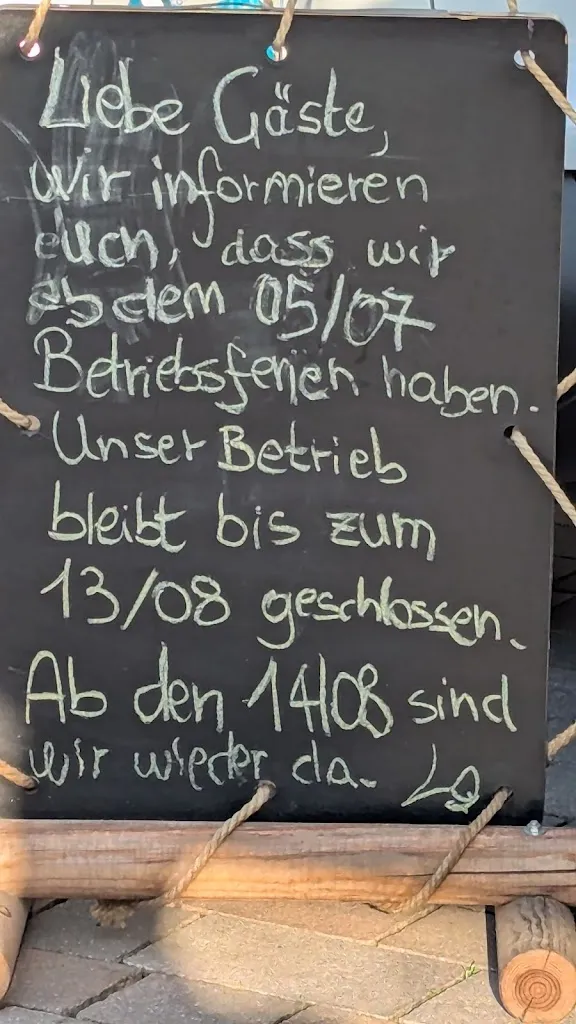 Liebe Gäste,
wir informieren
euch, dass wir
ab dem 05/07
Betriebsferien haben.
Unser Betrieb
bleibt bis zum
13/08 geschlossen.
Ab den 14/08 sind
wir wieder da.